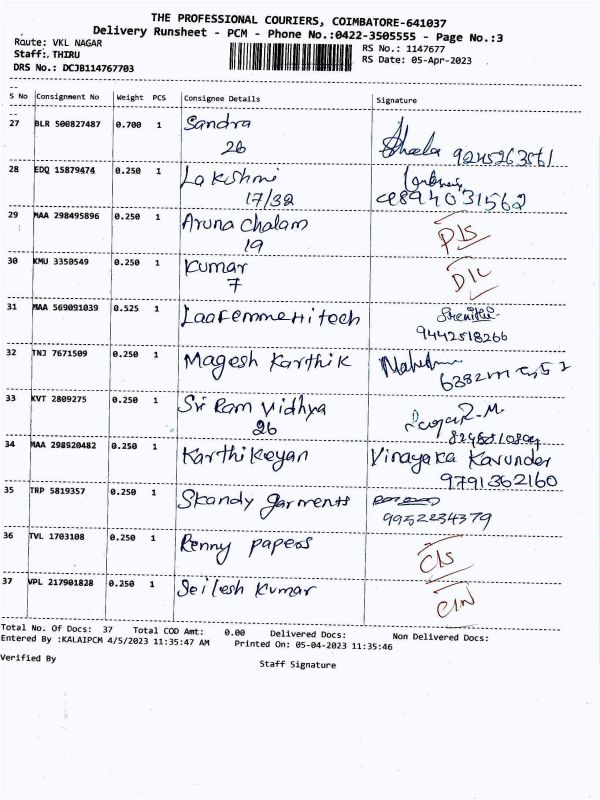 THE PROFESSIONAL COURIERS, COIMBATORE-641037
Delivery Runsheet - PCM - Phone No.:0422-3505555 - Page No.:3
Route: VKL NAGAR
RS No.: 1147677
Staff:. THIRU
RS Date: 05-Apr-2023
DRS No.: DCJB114767703
S No Consignment No Weight PCS Consignee Details Signature
27 BLR 500827487 0.700 1 Sandra
26
28 EDQ 15879474 0.250 1 Lakshmi
17/32
29 MAA 298495896 0.250 1 Aruna chalam
19
30 KMU 3350549 0.250 1 Kumar
7
31 MAA 569091039 0.525 1 Laafemmehitech
9442518266
32 TNJ 7671509 0.250 1 Magesh Karthik
33 KVT 2809275 0.250 1 Sri Ram Vidhya
26
34 MAA 298920482 0.250 1 Karthikeyan Vinayaka Kavunder
9791362160
35 TRP 5819357 0.250 1 Skandy garments
9952234379
36 TVL 1703108 0.250 1 Renny papers
37 VPL 217901828 0.250 1 Seilesh Kumar
Total No. Of Docs: 37 Total COD Amt: 0.00 Delivered Docs: Non Delivered Docs:
Entered By :KALAIPCM 4/5/2023 11:35:47 AM Printed On: 05-04-2023 11:35:46
Verified By
Staff Signature